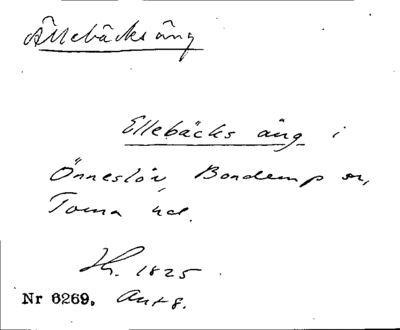 Ällebäcksäng
Ellebäcks äng i
Önneslöv, Bonderup sn,
Torna hd.
1825
Nr 6269. Ant 8.